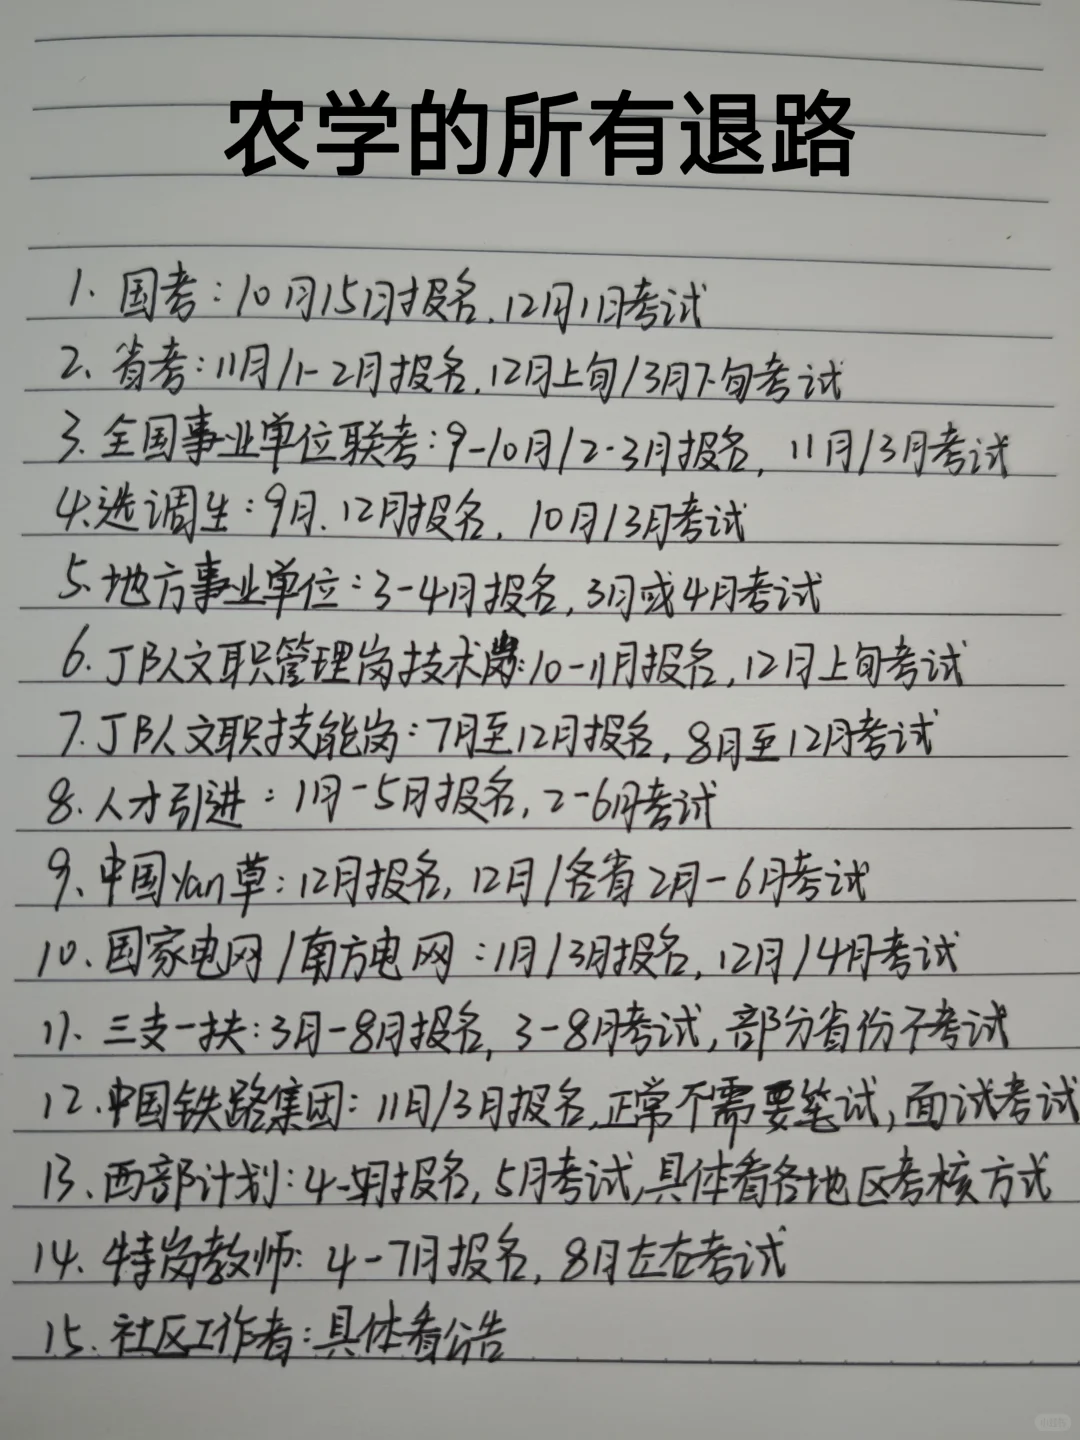 农学的所有退路
1. 国考：10月15日报名，12月1日考试
2、省考：11月/1-2月报名，12月上旬/3月下旬考试
3.全国事业单位联考：9-10月/2-3月报名，11月/3月考试
4.选调生：9月、12月报名，10月/3月考试
5.地方事业单位：3-4月报名，3月或4月考试
6.JB队文职管理岗技术岗：10-11月报名，12月上旬考试
7.JB队文职技能岗：7月至12月报名，8月至12月考试
8.人才引进：1月-5月报名，2-6月考试
9、中国yan草：12月报名，12月/各省2月-6月考试
10、国家电网/南方电网：1月/3月报名，12月/4月考试
11、三支一扶：3月-8月报名，3-8月考试，部分省份不考试
12.中国铁路集团：11月/3月报名，正常不需要笔试，面试考试
13、西部计划：4-月报名，5月考试，具体看各地区考核方式
14.特岗教师：4-7月报名，8月左右考试
15.社区工作者：具体看公告
小红书